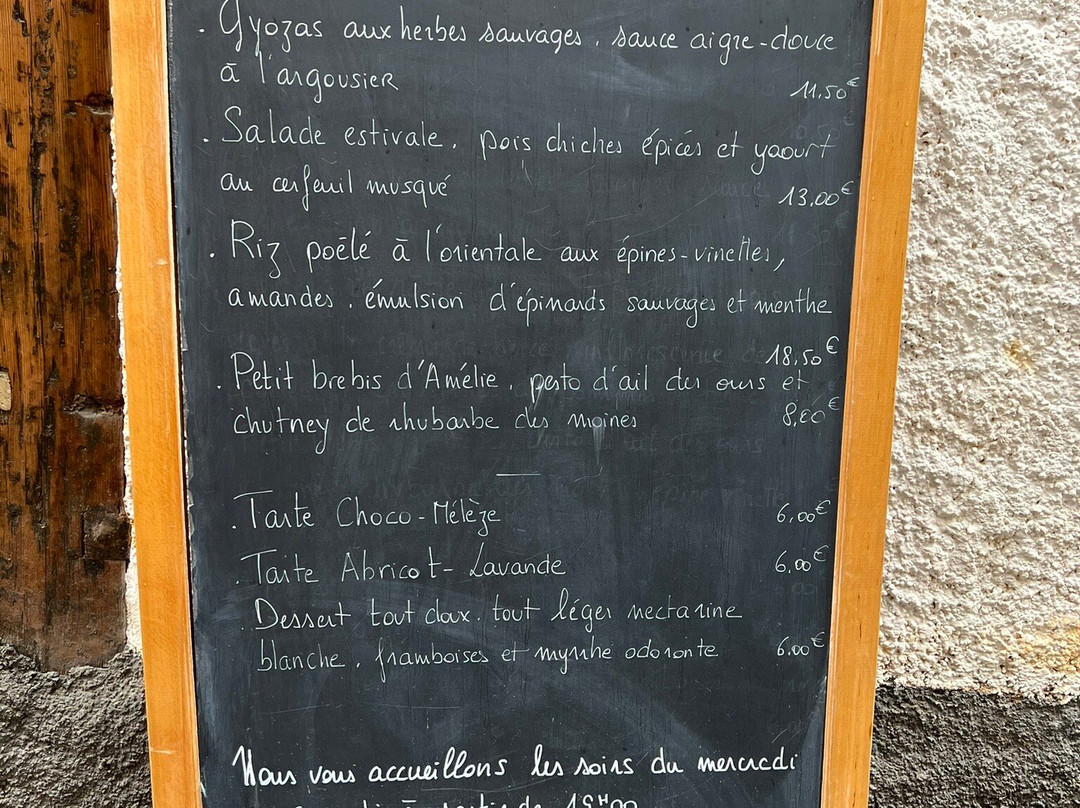 . Gyozas aux herbes sauvages, sauce aigre-douce
à l'argousier 11.50€
. Salade estivale, pois chiches épicés et yaourt
au cerfeuil musqué 13.00€
. Riz poêlé à l'orientale aux épines-vinettes,
amandes, émulsion d'épinards sauvages et menthe
18,50€
. Petit brebis d'Amélie, pesto d'ail des ours et
chutney de rhubarbe des moines 8,00€
. Tarte Choco-Mélèze 6,00€
. Tarte Abricot-Lavande 6.00€
. Dessert tout doux, tout léger nectarine
blanche, framboises et myrrhe odorante 6.00€
Nous vous accueillons les soirs du mercredi
à partir de